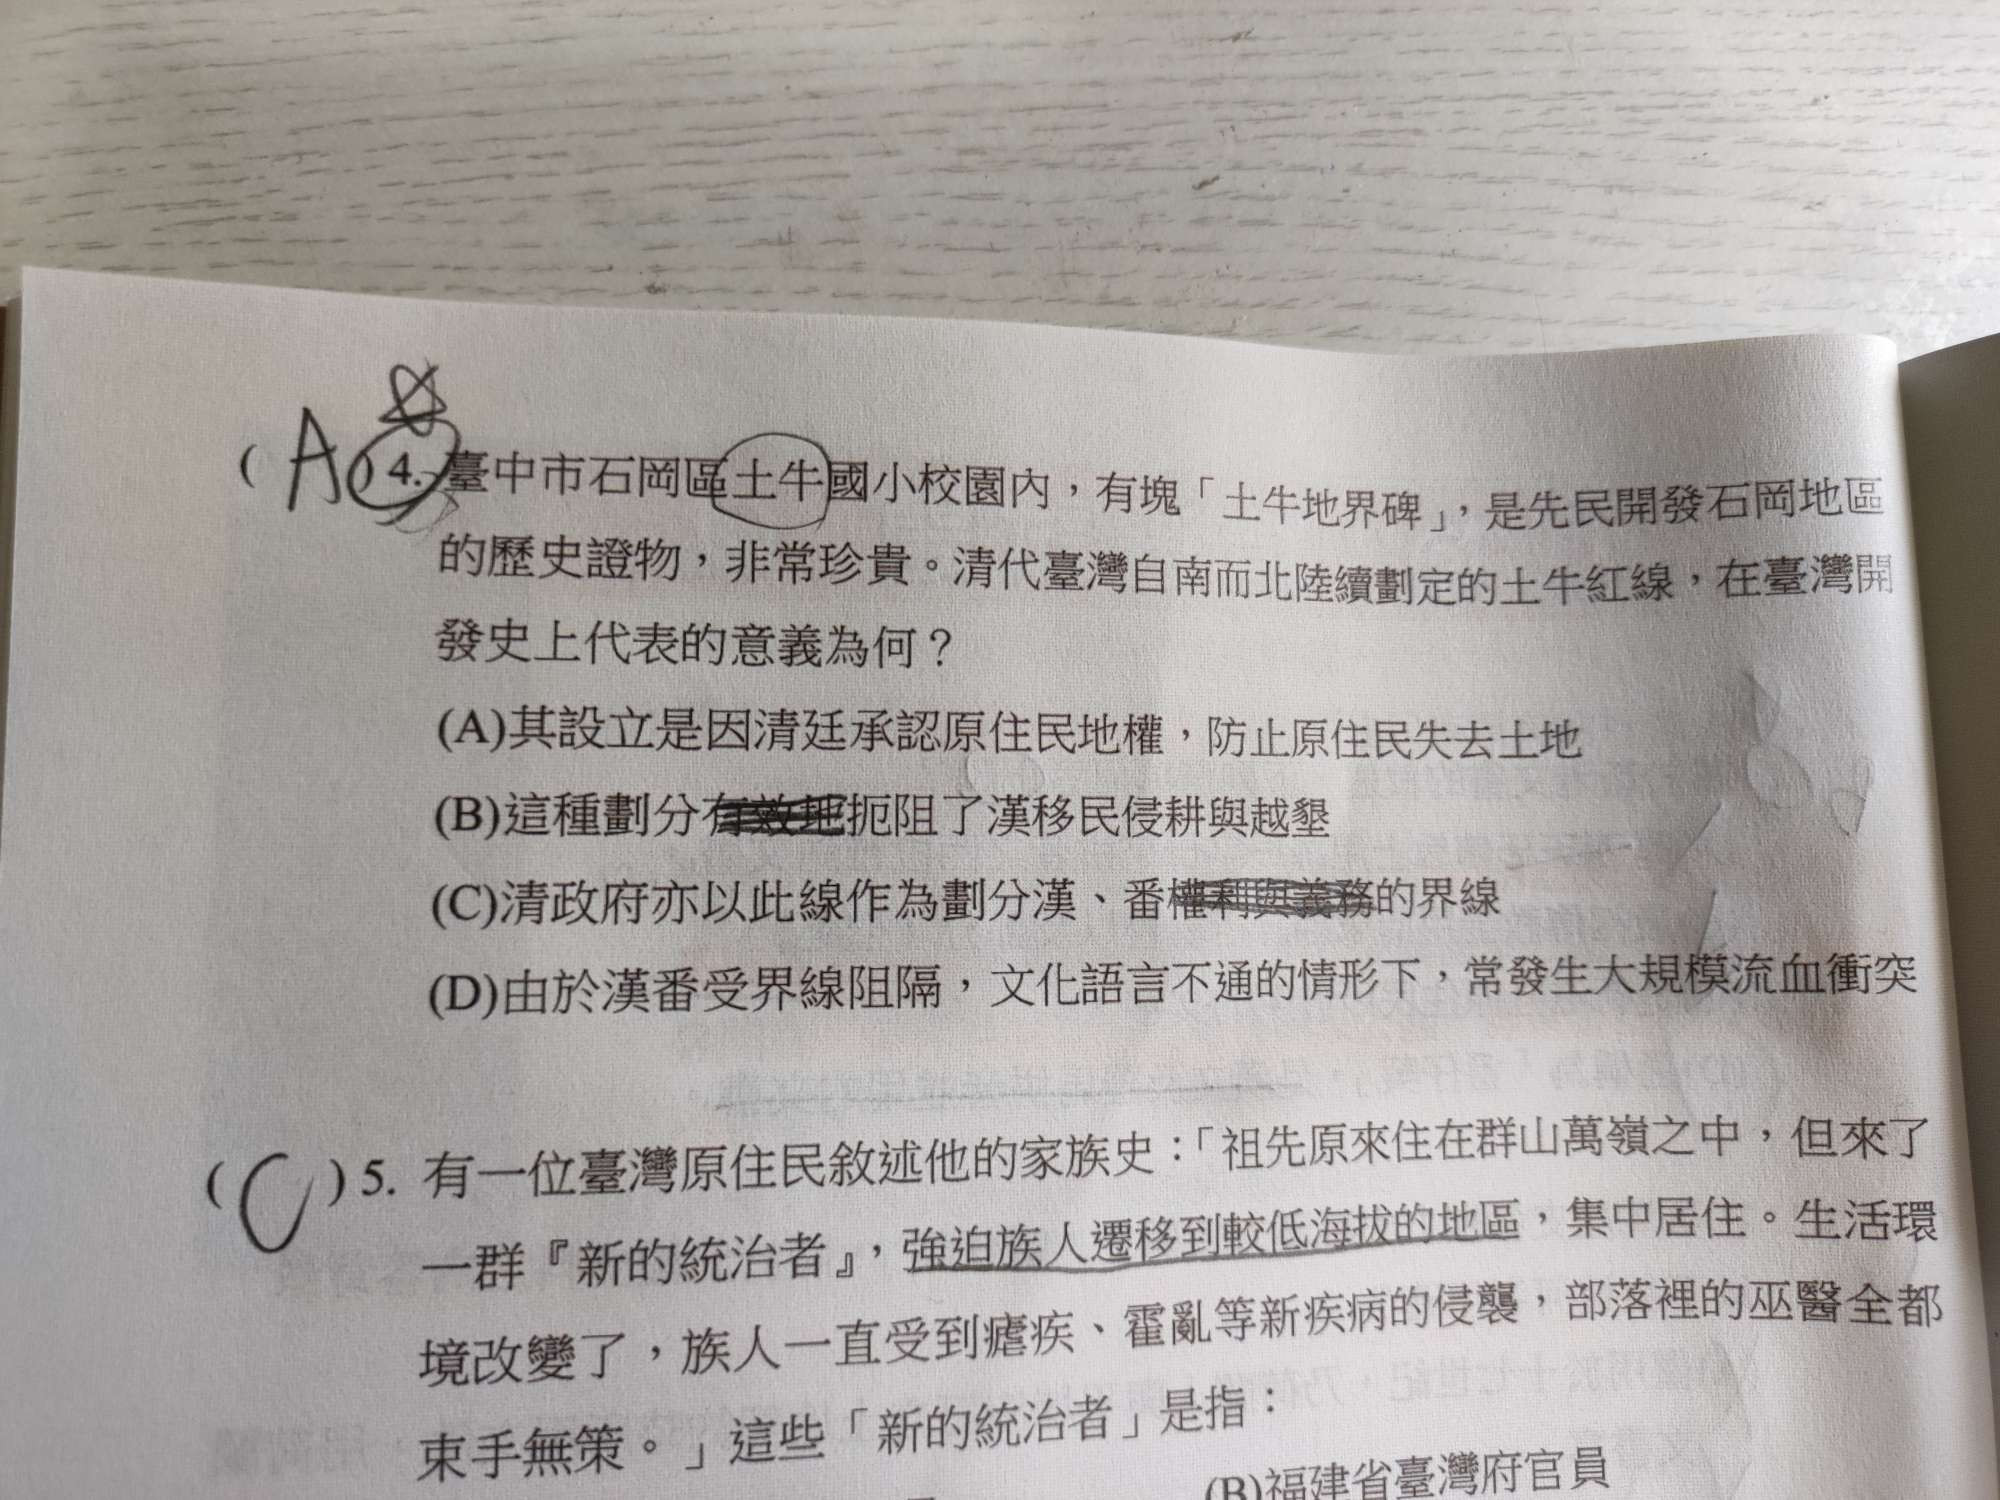 (A)4. 臺中市石岡區土牛國小校園內，有塊「土牛地界碑」，是先民開發石岡地區
的歷史證物，非常珍貴。清代臺灣自南而北陸續劃定的土牛紅線，在臺灣開
發史上代表的意義為何？
(A)其設立是因清廷承認原住民地權，防止原住民失去土地
(B)這種劃分有效地扼阻了漢移民侵耕與越墾
(C)清政府亦以此線作為劃分漢、番權利與義務的界線
(D)由於漢番受界線阻隔，文化語言不通的情形下，常發生大規模流血衝突
(C)5. 有一位臺灣原住民敘述他的家族史：「祖先原來住在群山萬嶺之中，但來了
一群『新的統治者』，強迫族人遷移到較低海拔的地區，集中居住。生活環
境改變了，族人一直受到瘧疾、霍亂等新疾病的侵襲，部落裡的巫醫全都
束手無策。」這些「新的統治者」是指：
(B)福建省臺灣府官員